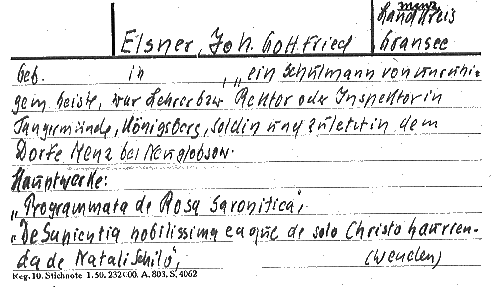 Menz
Elsner, Joh. Gottfried Landkreis
Gransee
Geb. in , „ ein Schulmann von unruhi-
gem Geiste, war Lehrer bzw Rektor oder Inspektor in
Tangermünde, Königsberg, Soldin und zuletzt in dem
Dorfe Menz bei Neuglobsow.
Hauptwerke:
„Programmata de Rosa Saronitica",
„De Sapientia nobilissima eaque de solo Christo haurien-
da de Natali Schilo",
(Wenden)
Reg. 10. Stichnote 1. 50. 232000. A. 803. S. 4062